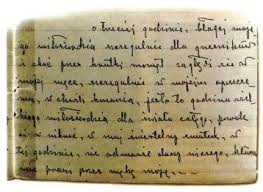 o trzeciej godzinie, błagaj moje
go miłosierdzia szczególnie dla grzeszników
i choć przez krótki moment zagłębiaj się w
mojej męce, szczególnie w mojem opuszcze
niu, w chwili konania, jest to godzina wiel
kiego miłosierdzia dla świata całego, pozwolę
ci wniknąć w mój śmiertelny smutek, w
tej godzinie, nie odmówię duszy niczego, która
mnie prosi przez mękę moją,